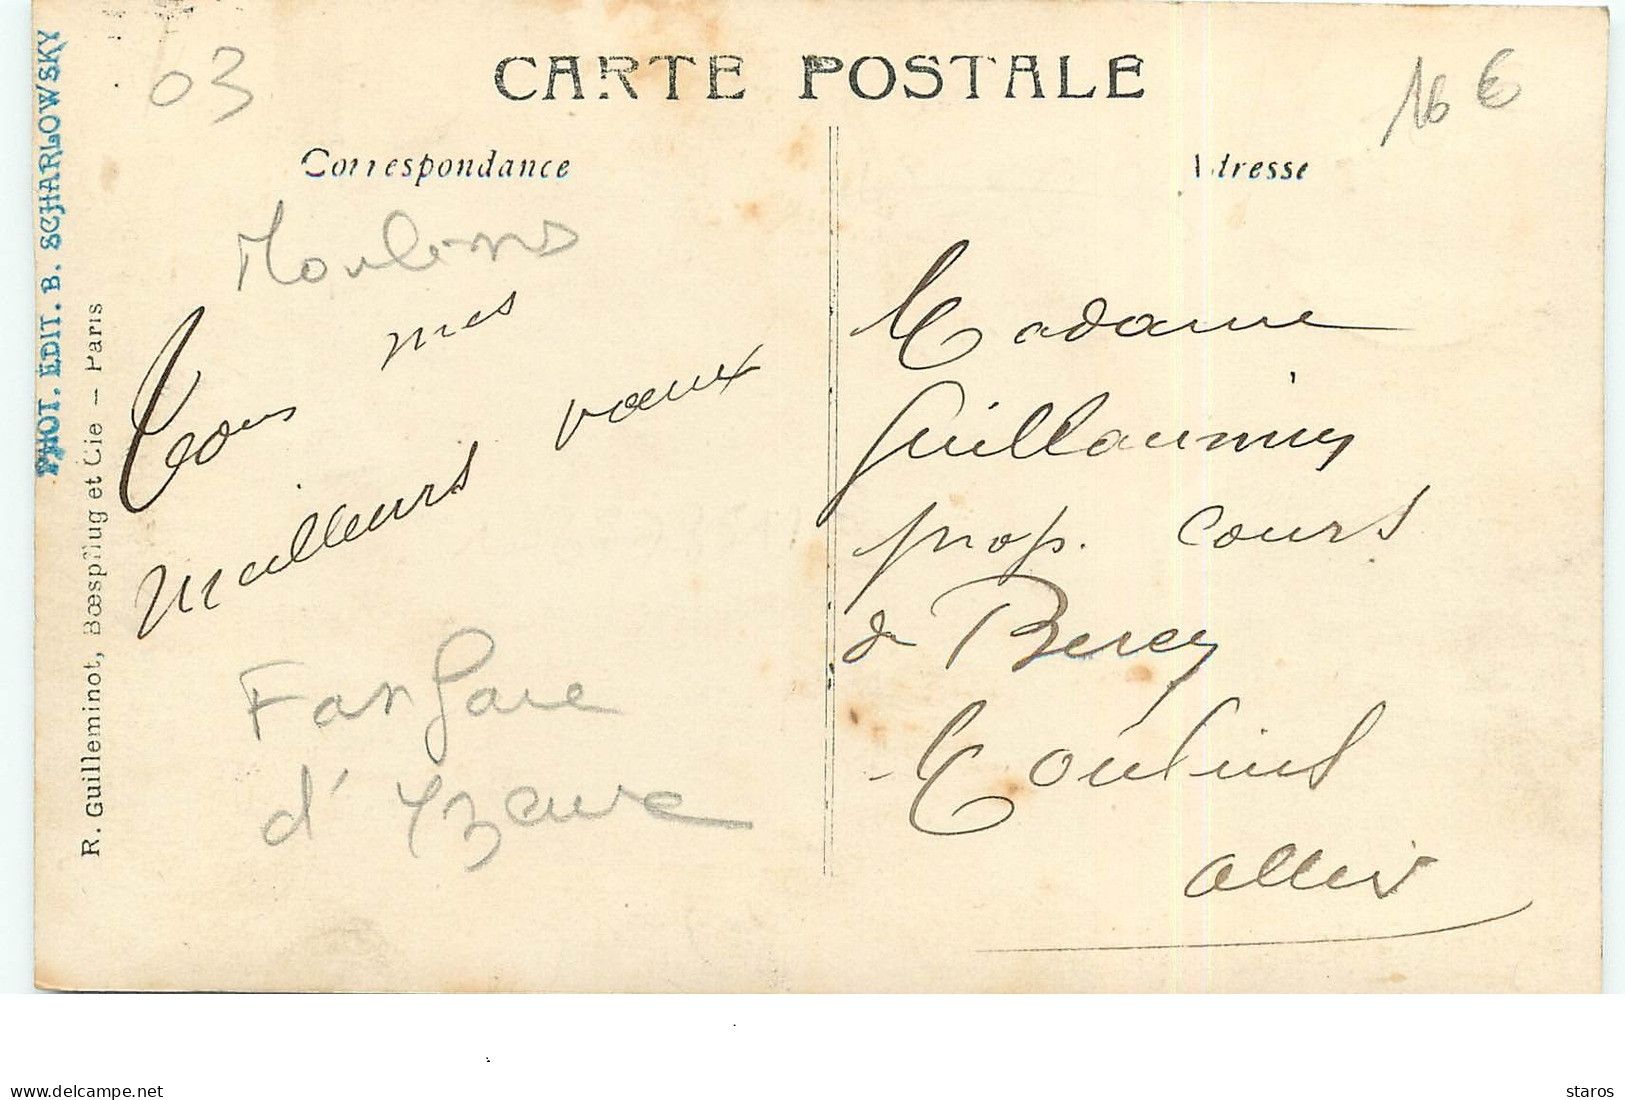 03
CARTE POSTALE
16 €
PHOT. EDIT. B. SCHARLOWSKY
R. Guilleminot, Bœspflug et Cie — Paris
Correspondance
Adresse
Moulins
Tous mes
meilleurs vœux
Fanfare
d'Yzeure
Madame
Guillaumin
prop. cours
de Bercy
Moulins
Allier
www.delcampe.net
staros